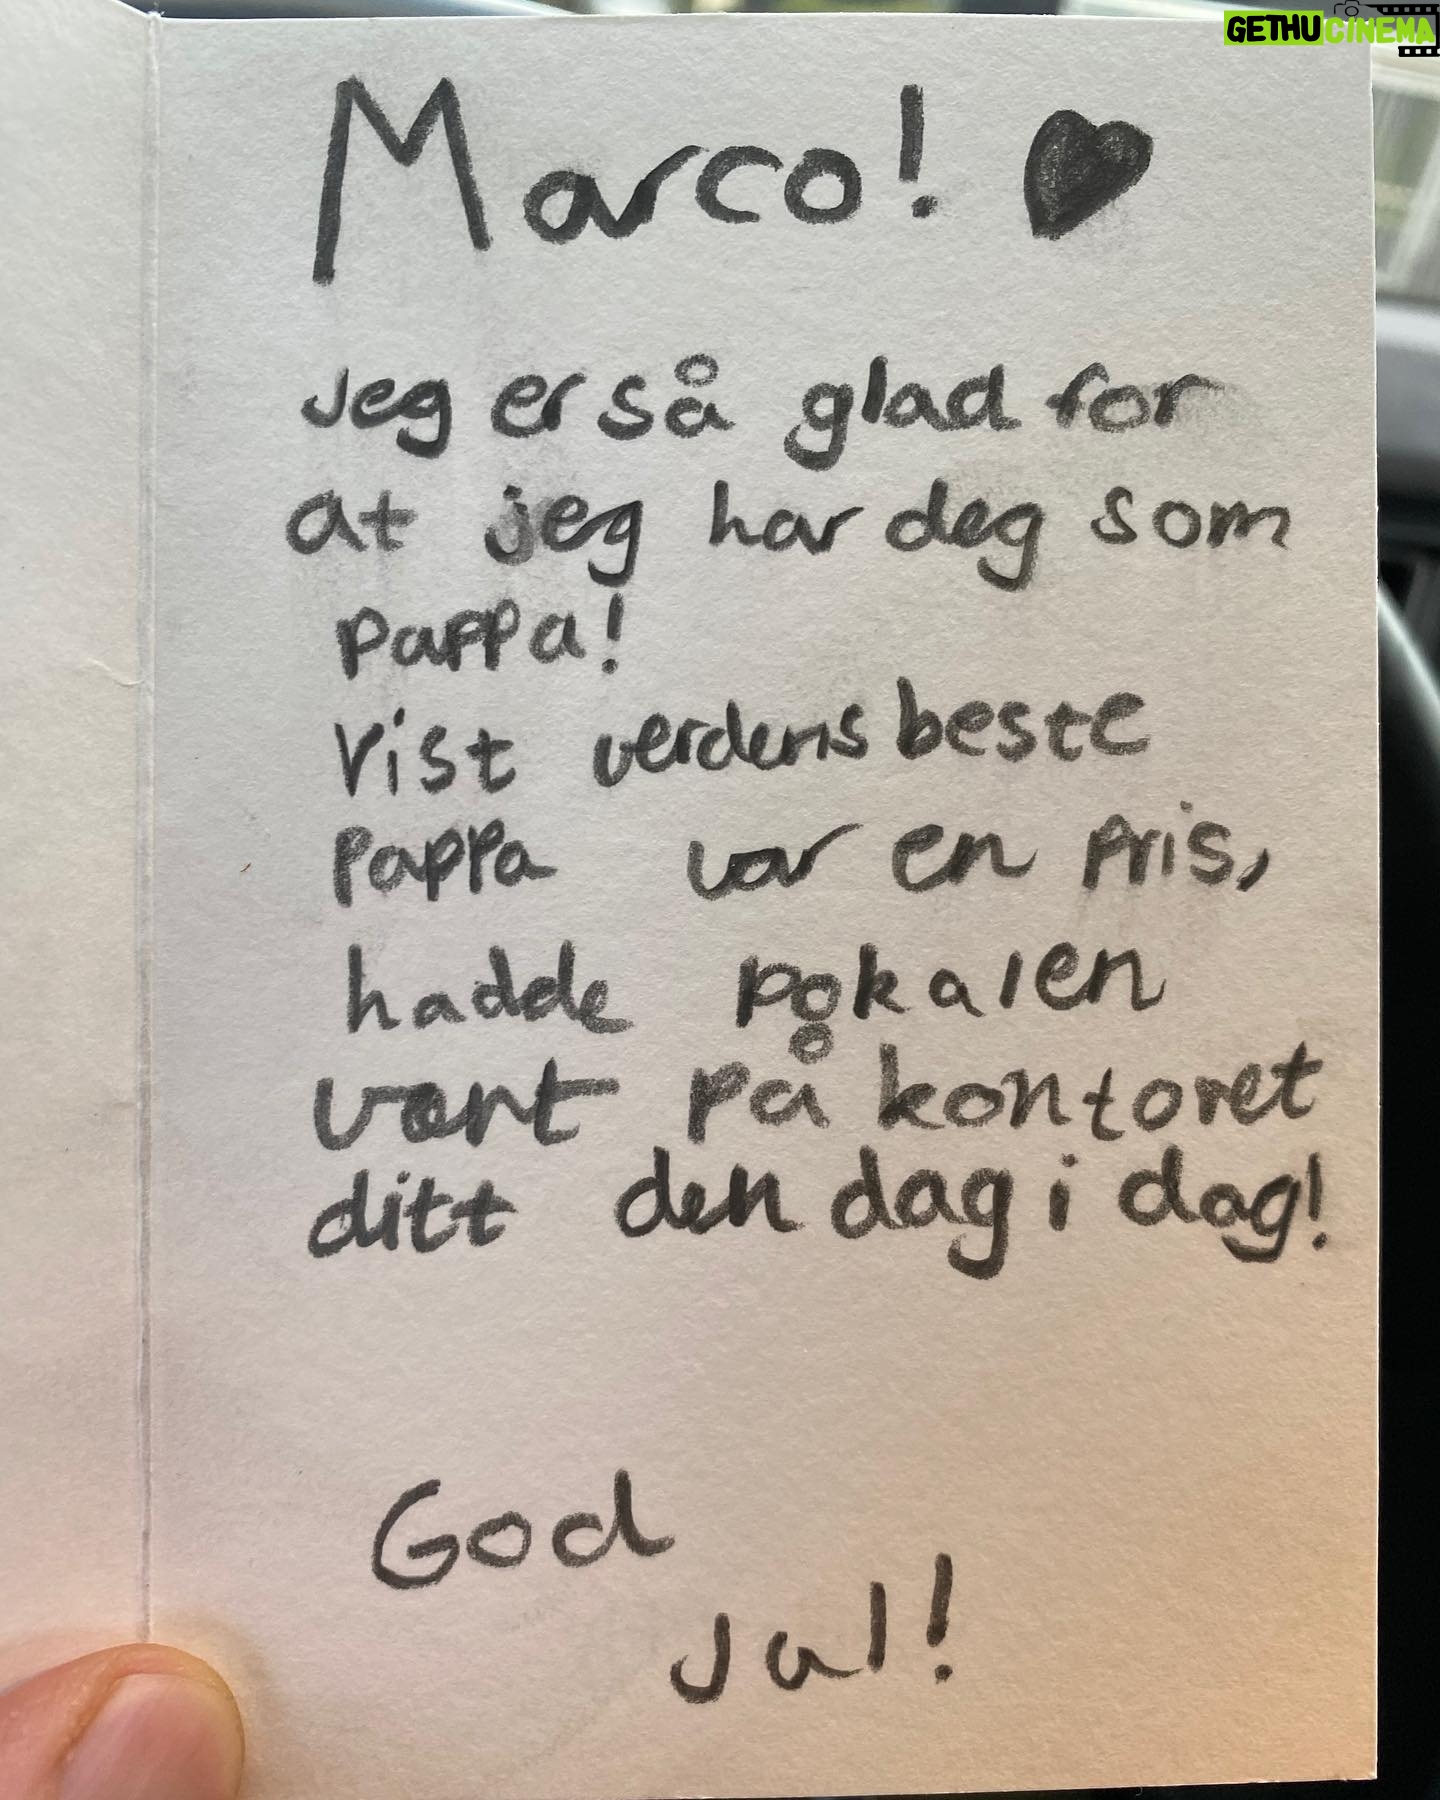 GETHUCINEMA
Marco! ♥
Jeg er så glad for
at jeg har deg som
pappa!
Vist verdens beste
pappa var en pris,
hadde pokalen
vært på kontoret
ditt den dag i dag!
God
Jul!